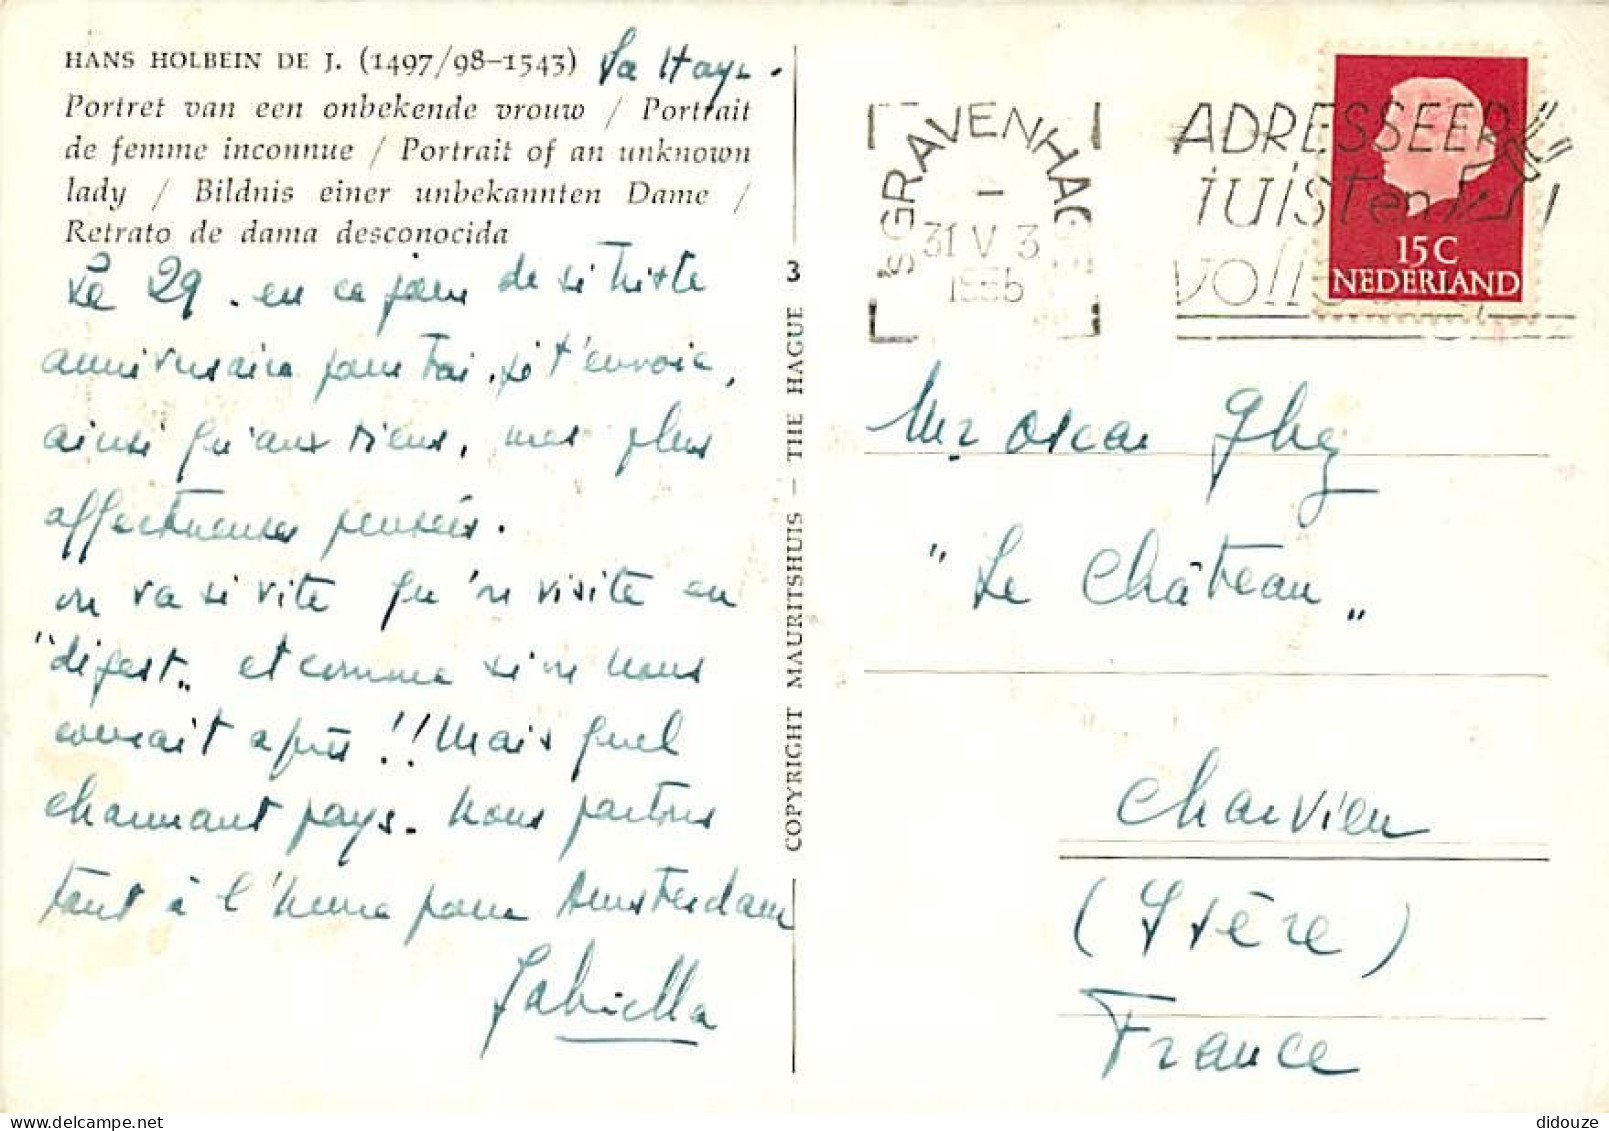 HANS HOLBEIN DE J. (1497/98–1543) La Haye.
Portret van een onbekende vrouw / Portrait
de femme inconnue / Portrait of an unknown
lady / Bildnis einer unbekannten Dame /
Retrato de dama desconocida
Le 29. en ce jour de si triste
anniversaire pour toi. je t'envoie,
ainsi qu'aux tiens, mes plus
affectueuses pensées.
on va si vite qu'on visite en
"digest" et comme si on nous
courait après!! Mais quel
charmant pays. Nous partons
tout à l'heure pour Amsterdam
Gabriella
3
COPYRIGHT MAURITSHUIS – THE HAGUE
'SGRAVENHAGE
31 V 3
ADRESSEER
juist en
voll
15C
NEDERLAND
Mr Oscar Ghez
"Le Château"
Charvieu
(Isère)
France
didouze